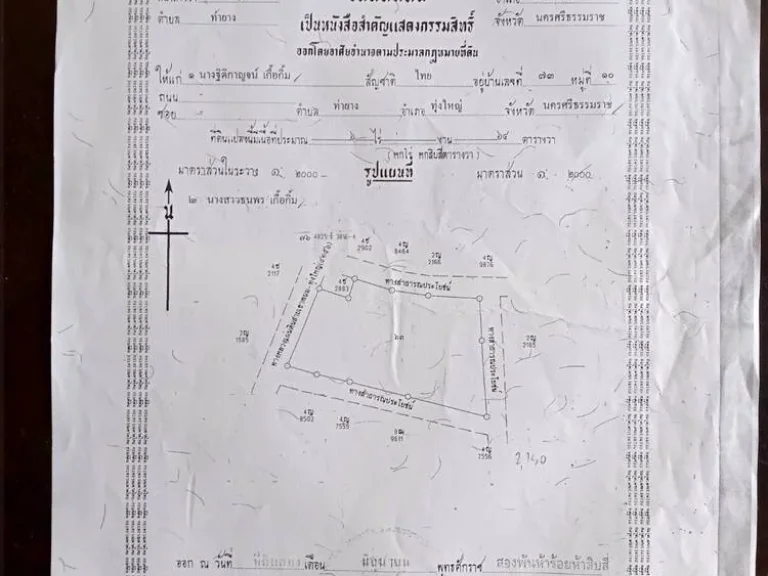 ตำบล ท่ายาง
จังหวัด นครศรีธรรมราช
เป็นหนังสือสำคัญแสดงกรรมสิทธิ์
ออกโดยอาศัยอำนาจตามประมวลกฎหมายที่ดิน
ให้แก่ ๑ นางฐิติกาญจน์ เกื้อกิ้ม สัญชาติ ไทย อยู่บ้านเลขที่ ๗๓ หมู่ที่ ๑๐
ถนน
ซอย ตำบล ท่ายาง อำเภอ ทุ่งใหญ่ จังหวัด นครศรีธรรมราช
ที่ดินแปลงนี้มีเนื้อที่ประมาณ ๖ ไร่ - งาน ๖๔ ตารางวา
(หกไร่ หกสิบสี่ตารางวา)
มาตราส่วนในระวาง ๑: ๒๐๐๐ รูปแผนที่ มาตราส่วน ๑: ๒๐๐๐
๒ นางสาวธนพร เกื้อกิ้ม
น
4ช
2902
4ญ
8464
2ญ
2166
4ญ
9876
4ช
2117
4ช
2903
ทางสาธารณประโยชน์
2ญ
1585
๖๓
ทางสาธารณประโยชน์
2ญ
2165
ทางสาธารณประโยชน์
4ญ
8503
4ญ
7555
9611
4ญ
7556
2,140
ออก ณ วันที่ ยี่สิบสอง เดือน มิถุนายน พุทธศักราช สองพันห้าร้อยห้าสิบสี่